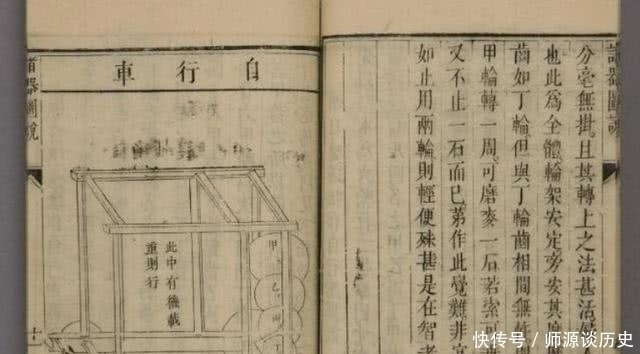 諸器圖說
分毫無掛且其轉上之法甚活
也此為全體輪架安定旁安其
齒如丁輪但與丁輪齒相間無
甲輪轉一周可磨麥一石若索
又不止一石而已第作此覺難非
如止用兩輪則輕便殊甚是在智者
自行車
此中有機載
重則行
甲
乙
丙
丁
諸器圖說
十
快传号 / 师源谈历史